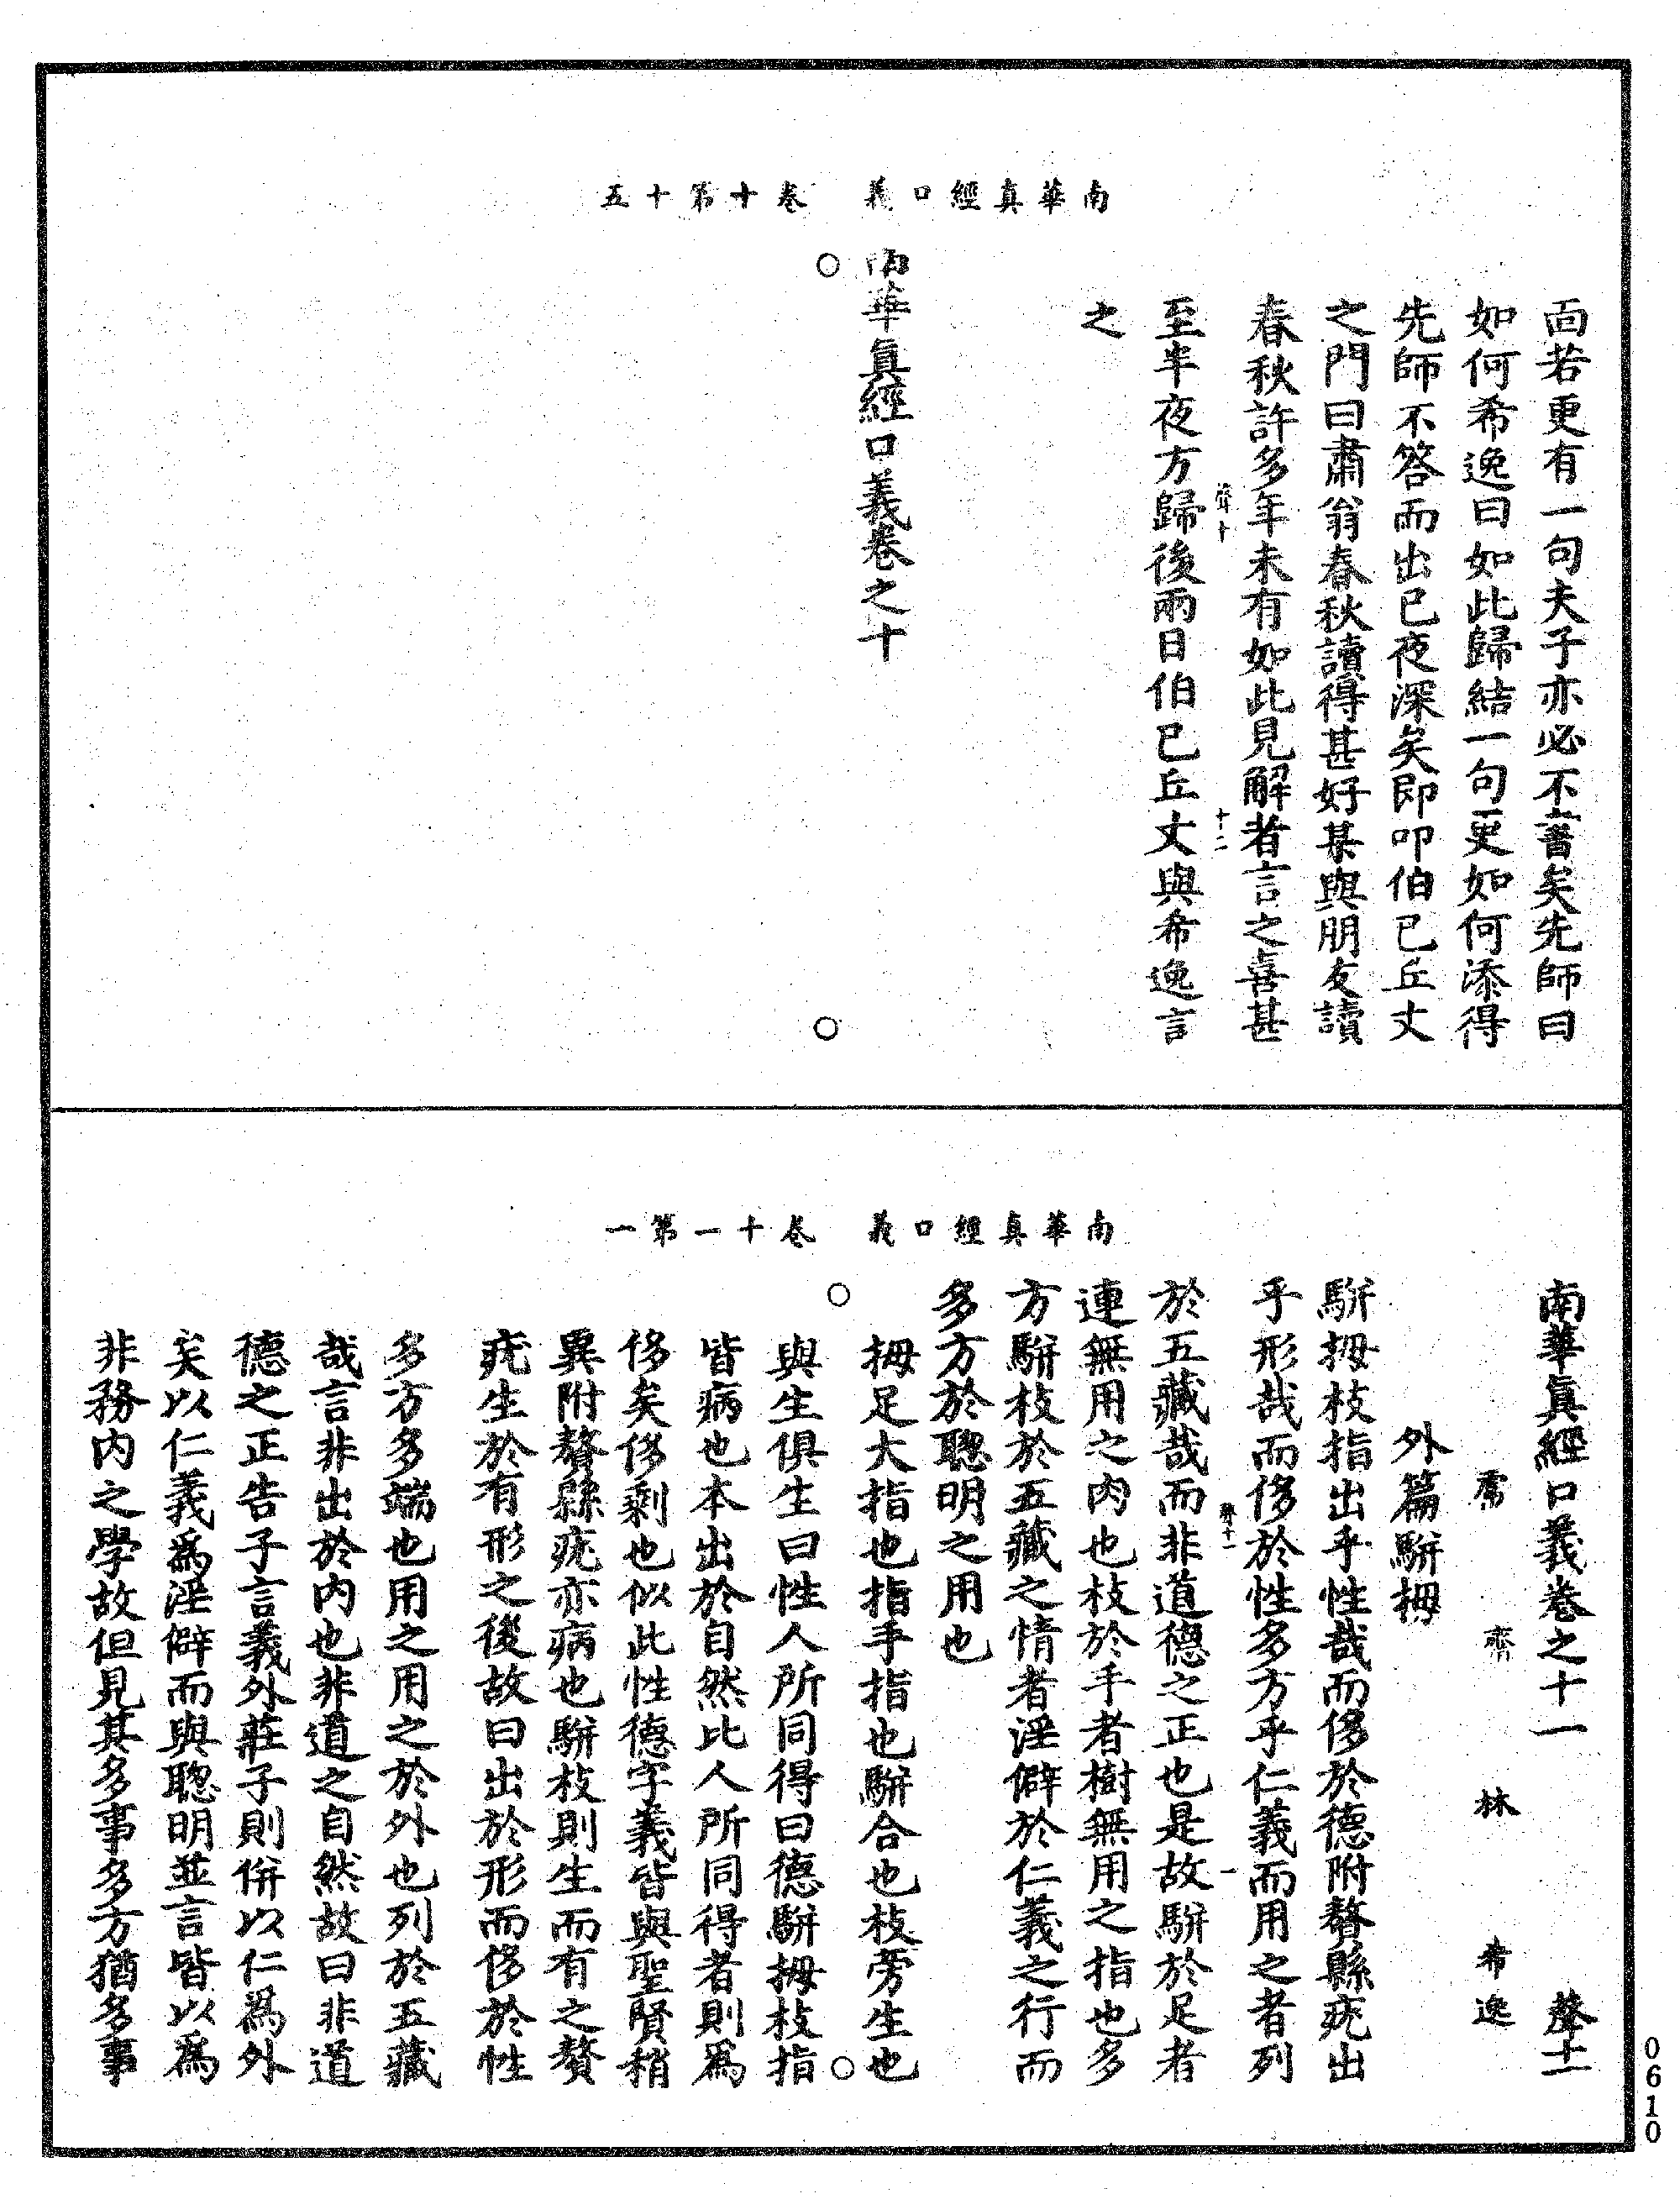 南華真經口義　卷十第十五
面若更有一句夫子亦必不書矣先師曰
如何希逸曰如此歸結一句更如何添得
先師不答而出已夜深矣即叩伯已丘丈
之門曰肅翁春秋讀得甚好某與朋友讀
春秋許多年未有如此見解者言之喜甚
十二
至半夜方歸後兩日伯已丘丈與希逸言
之
南華眞經口義卷之十
南華真經口義　卷十一第一
南華眞經口義卷之十一
鬳齋林希逸
外篇駢拇
駢拇枝指出乎性哉而侈於德附贅縣疣出
乎形哉而侈於性多方乎仁義而用之者列
一
於五藏哉而非道德之正也是故駢於足者
連無用之肉也枝於手者樹無用之指也多
方駢枝於五藏之情者淫僻於仁義之行而
多方於聰明之用也
拇足大指也指手指也駢合也枝旁生也
與生俱生曰性人所同得曰德駢拇枝指
皆病也本出於自然比人所同得者則爲
侈矣侈剩也似此性德字義皆與聖賢稍
異附贅縣疣亦病也駢枝則生而有之贅
疣生於有形之後故曰出於形而侈於性
多方多端也用之用之於外也列於五藏
哉言非出於內也非道之自然故曰非道
德之正告子言義外莊子則併以仁爲外
矣以仁義爲淫僻而與聰明並言皆以爲
非務內之學故但見其多事多方猶多事
0610